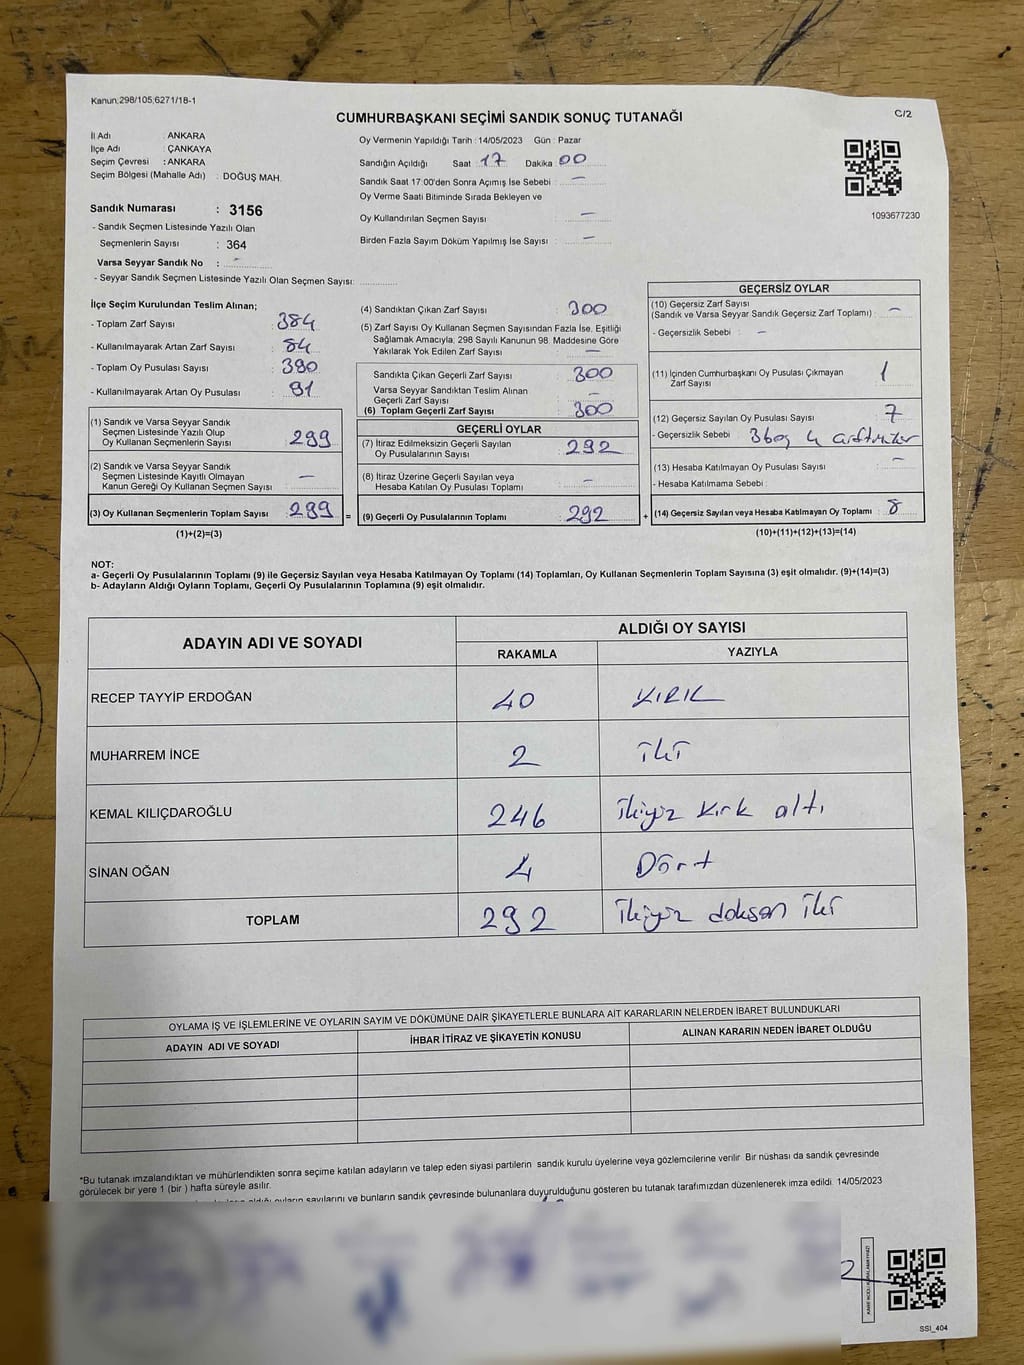 Kanun,298/105,6271/18-1
C/2
CUMHURBAŞKANI SEÇİMİ SANDIK SONUÇ TUTANAĞI
İl Adı : ANKARA
İlçe Adı : ÇANKAYA
Seçim Çevresi : ANKARA
Seçim Bölgesi (Mahalle Adı) : DOĞUŞ MAH.
Oy Vermenin Yapıldığı Tarih : 14/05/2023 Gün : Pazar
Sandığın Açıldığı Saat 17 Dakika 00
Sandık Saat 17:00'den Sonra Açımış İse Sebebi : —
Oy Verme Saati Bitiminde Sırada Bekleyen ve
Oy Kullandırılan Seçmen Sayısı : —
Birden Fazla Sayım Döküm Yapılmış İse Sayısı : —
1093677230
Sandık Numarası : 3156
- Sandık Seçmen Listesinde Yazılı Olan
Seçmenlerin Sayısı : 364
Varsa Seyyar Sandık No : -
- Seyyar Sandık Seçmen Listesinde Yazılı Olan Seçmen Sayısı:
İlçe Seçim Kurulundan Teslim Alınan;
- Toplam Zarf Sayısı : 384
- Kullanılmayarak Artan Zarf Sayısı : 84
- Toplam Oy Pusulası Sayısı : 390
- Kullanılmayarak Artan Oy Pusulası : 91
(1) Sandık ve Varsa Seyyar Sandık
Seçmen Listesinde Yazılı Olup
Oy Kullanan Seçmenlerin Sayısı : 299
(2) Sandık ve Varsa Seyyar Sandık
Seçmen Listesinde Kayıtlı Olmayan
Kanun Gereği Oy Kullanan Seçmen Sayısı : —
(3) Oy Kullanan Seçmenlerin Toplam Sayısı : 299 =
(1)+(2)=(3)
(4) Sandıktan Çıkan Zarf Sayısı : 300
(5) Zarf Sayısı Oy Kullanan Seçmen Sayısından Fazla İse, Eşitliği
Sağlamak Amacıyla, 298 Sayılı Kanunun 98. Maddesine Göre
Yakılarak Yok Edilen Zarf Sayısı : —
Sandıkta Çıkan Geçerli Zarf Sayısı : 300
Varsa Seyyar Sandıktan Teslim Alınan
Geçerli Zarf Sayısı : -
(6) Toplam Geçerli Zarf Sayısı : 300
GEÇERLİ OYLAR
(7) İtiraz Edilmeksizin Geçerli Sayılan
Oy Pusulalarının Sayısı : 292
(8) İtiraz Üzerine Geçerli Sayılan veya
Hesaba Katılan Oy Pusulası Toplamı : -
(9) Geçerli Oy Pusulalarının Toplamı : 292 +
GEÇERSİZ OYLAR
(10) Geçersiz Zarf Sayısı
(Sandık ve Varsa Seyyar Sandık Geçersiz Zarf Toplamı) : —
- Geçersizlik Sebebi : —
(11) İçinden Cumhurbaşkanı Oy Pusulası Çıkmayan
Zarf Sayısı : 1
(12) Geçersiz Sayılan Oy Pusulası Sayısı : 7
- Geçersizlik Sebebi : 3 boş 4
(13) Hesaba Katılmayan Oy Pusulası Sayısı : —
- Hesaba Katılmama Sebebi :
(14) Geçersiz Sayılan veya Hesaba Katılmayan Oy Toplamı : 8
(10)+(11)+(12)+(13)=(14)
NOT:
a- Geçerli Oy Pusulalarının Toplamı (9) ile Geçersiz Sayılan veya Hesaba Katılmayan Oy Toplamı (14) Toplamları, Oy Kullanan Seçmenlerin Toplam Sayısına (3) eşit olmalıdır. (9)+(14)=(3)
b- Adayların Aldığı Oyların Toplamı, Geçerli Oy Pusulalarının Toplamına (9) eşit olmalıdır.
ADAYIN ADI VE SOYADI ALDIĞI OY SAYISI
RAKAMLA YAZIYLA
RECEP TAYYİP ERDOĞAN 40 KIRK
MUHARREM İNCE 2 iki
KEMAL KILIÇDAROĞLU 246 ikiyüz kırk altı
SİNAN OĞAN 4 Dört
TOPLAM 292 ikiyüz doksan iki
OYLAMA İŞ VE İŞLEMLERİNE VE OYLARIN SAYIM VE DÖKÜMÜNE DAİR ŞİKAYETLERLE BUNLARA AİT KARARLARIN NELERDEN İBARET BULUNDUKLARI
ADAYIN ADI VE SOYADI İHBAR İTİRAZ VE ŞİKAYETİN KONUSU ALINAN KARARIN NEDEN İBARET OLDUĞU
*Bu tutanak imzalandıktan ve mühürlendikten sonra seçime katılan adayların ve talep eden siyasi partilerin sandık kurulu üyelerine veya gözlemcilerine verilir. Bir nüshası da sandık çevresinde
görülecek bir yere 1 (bir ) hafta süreyle asılır.
aldığı oyların sayılarını ve bunların sandık çevresinde bulunanlara duyurulduğunu gösteren bu tutanak tarafımızdan düzenlenerek imza edildi. 14/05/2023
SSI_404